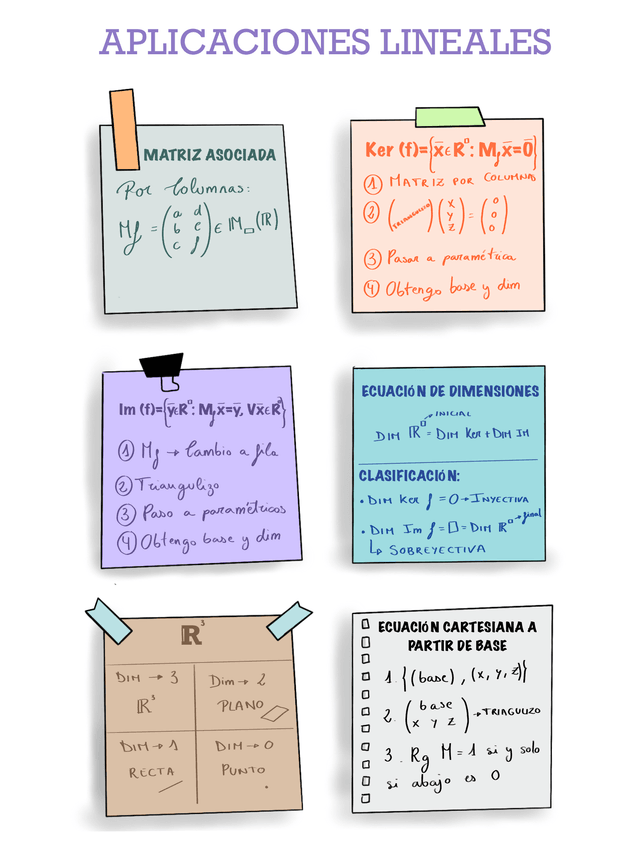 APLICACIONES LINEALES
MATRIZ ASOCIADA
Por Columnas:
Mf = (a d
b e
c f) ∈ M□(R)
Ker (f)={x̄∈R□: Mfx̄=0̄}
① MATRIZ POR COLUMNAS
② (TRIANGULIZADA) (x y z) = (0 0 0)
③ Pasar a paramétrica
④ Obtengo base y dim
Im (f)={ȳ∈R□: Mfx̄=ȳ, Vx̄∈R□}
① Mf → Cambio a fila
② Triangulizo
③ Paso a paramétricos
④ Obtengo base y dim
ECUACIÓN DE DIMENSIONES
→ INICIAL
DIM R□ = DIM Ker + DIM IM
CLASIFICACIÓN:
• DIM Ker f = 0 → INYECTIVA
• DIM Im f = □ = DIM R□ → final
↳ SOBREYECTIVA
R³
DIM → 3
R³
Dim → 2
PLANO
DIM → 1
RECTA
DIM → 0
PUNTO
ECUACIÓN CARTESIANA A
PARTIR DE BASE
1. {(base), (x, y, z)}
2. (base
x y z) → TRIAGULIZO
3. Rg M = 1 si y solo
si abajo es 0